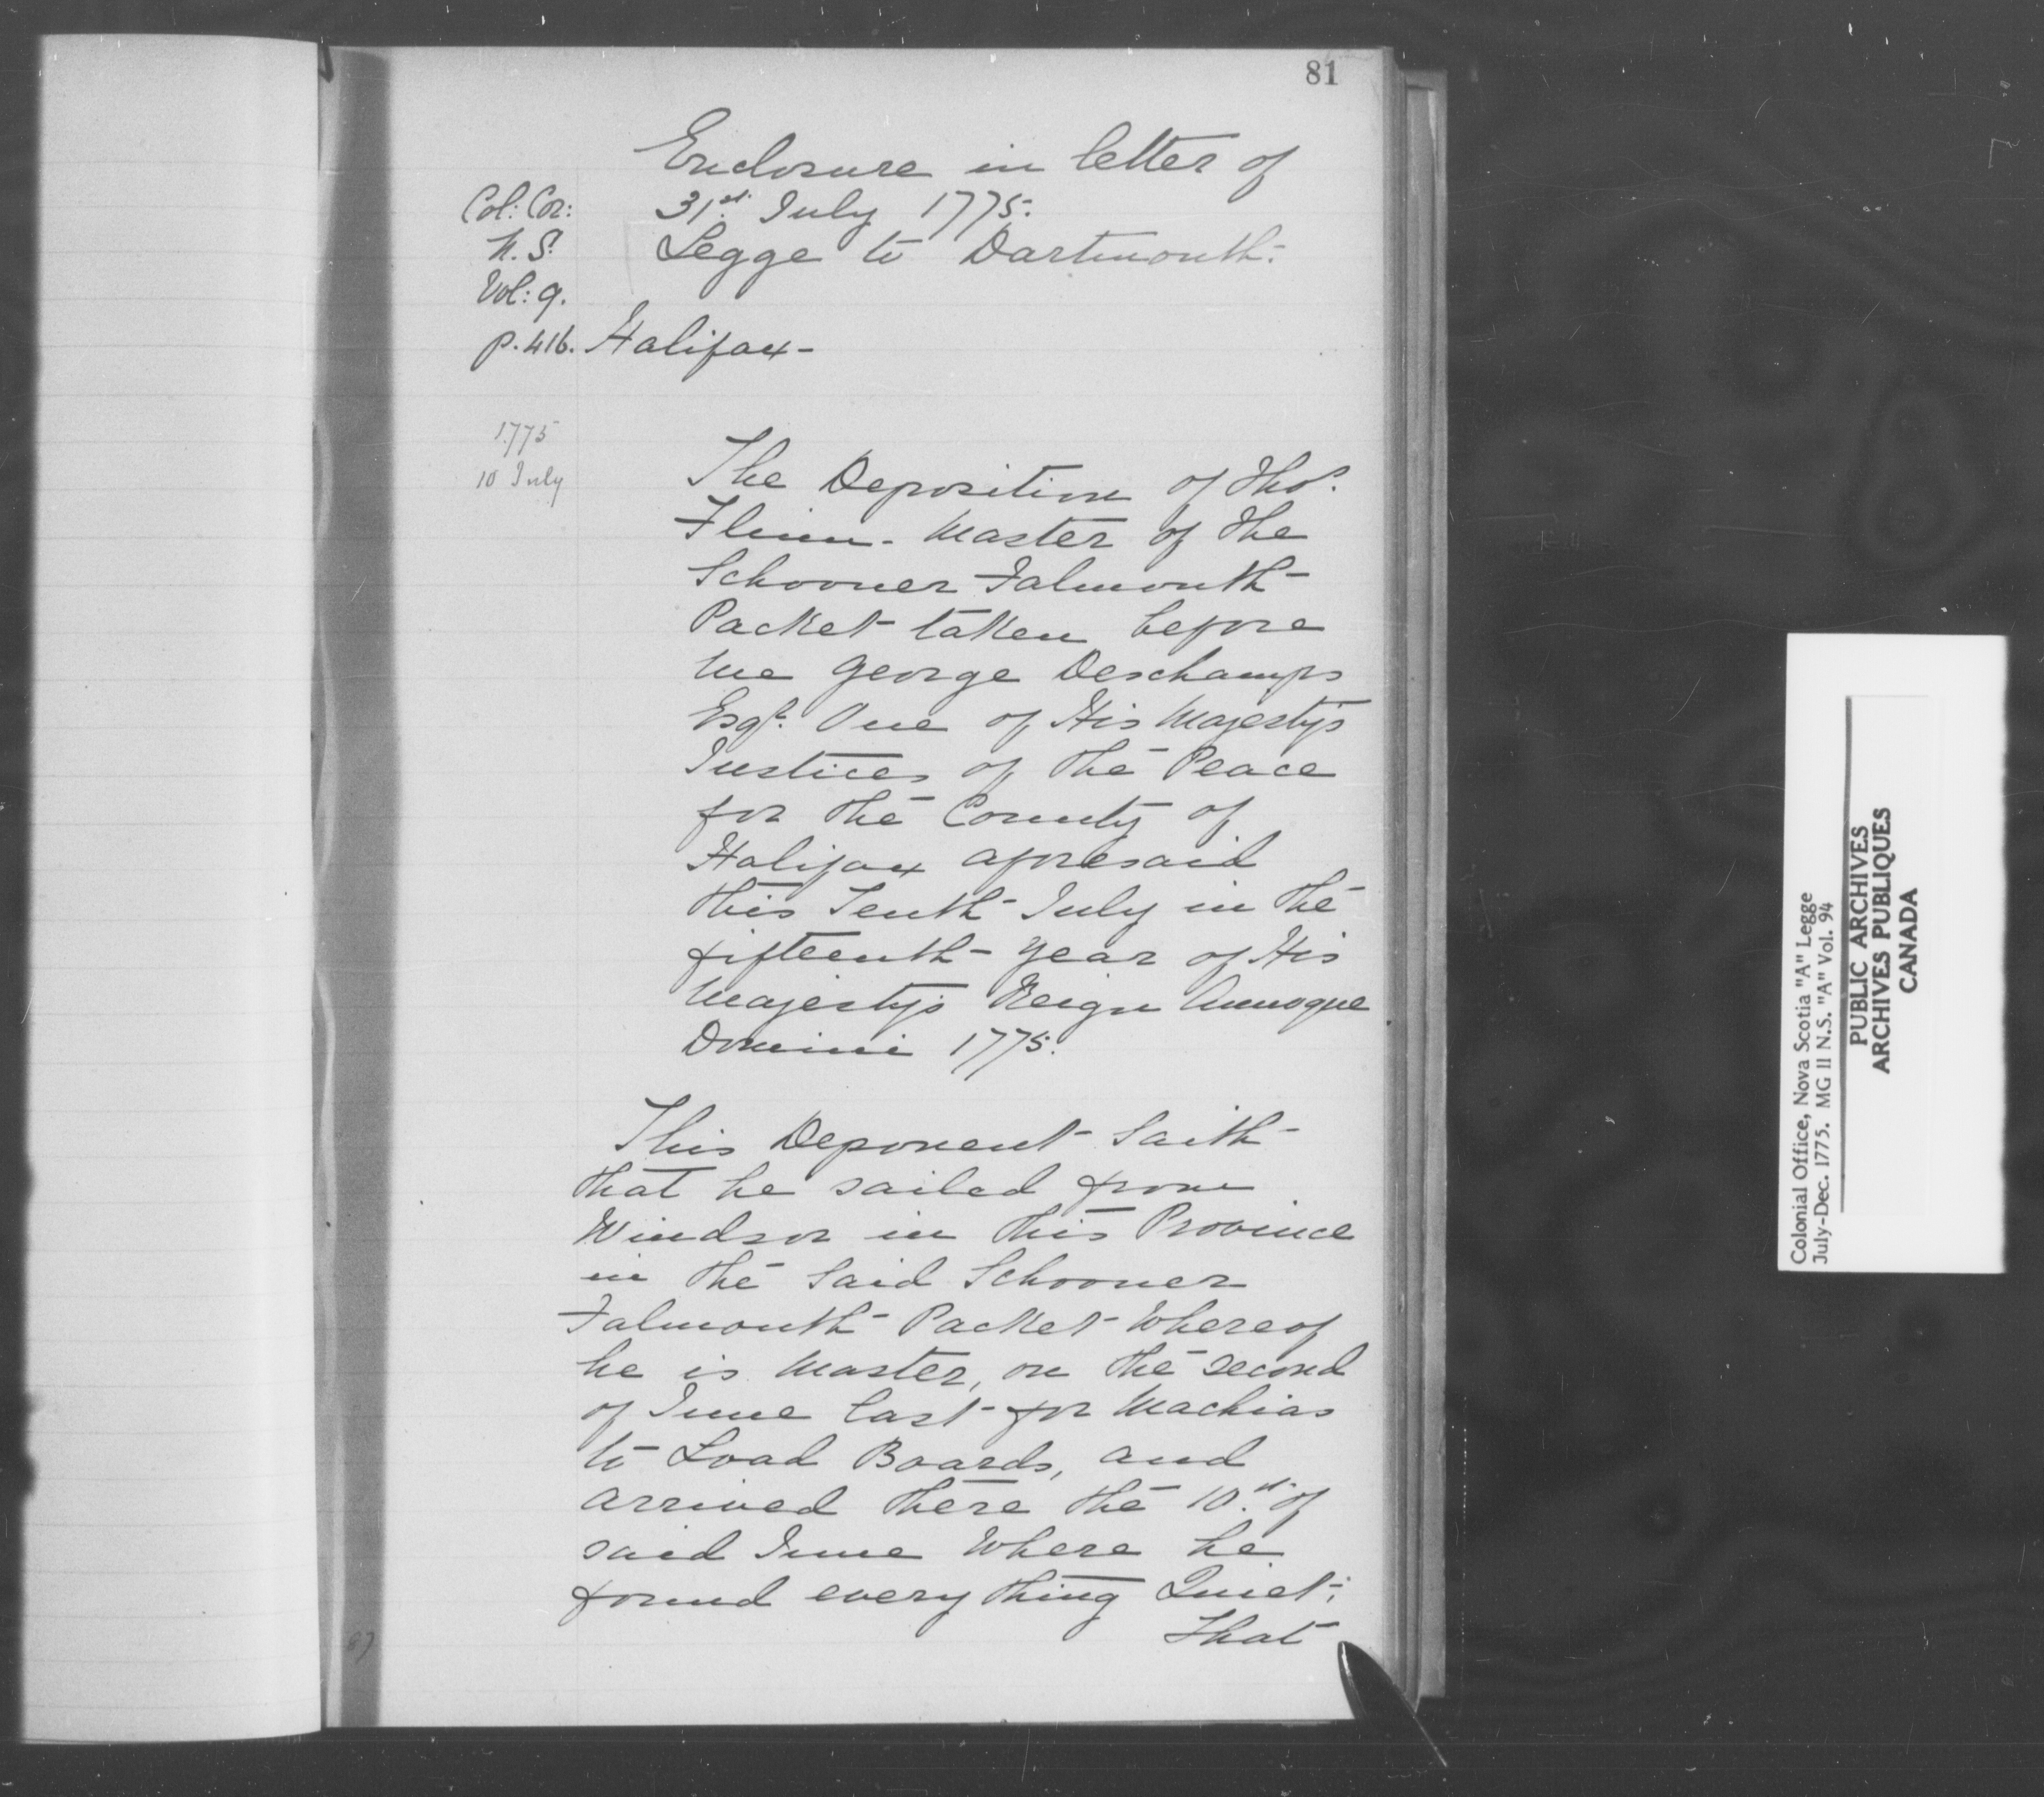 81
Enclosure in letter of
31st July 1775.
Legge to Dartmouth.
Col: Cor:
N.S.
Vol: 9.
p. 416.
Halifax -
1775
10 July
The Deposition of Thos.
Flinn - Master of the
Schooner Falmouth
Packet taken before
me George Deschamps
Esqr. One of His Majesty's
Justices of the Peace
for the County of
Halifax aforesaid
this Tenth July in the
fifteenth year of His
Majesty's Reign Annoque
Domini 1775.
This Deponent Saith
that he sailed from
Windsor in this Province
in the said Schooner
Falmouth Packet Whereof
he is Master, on the second
of June last for Machias
to Load Boards, and
arrived there the 10th of
said June Where he
found every thing Quiet;
That
Colonial Office, Nova Scotia "A" Legge
July-Dec. 1775. MG 11 N.S. "A" Vol. 94
PUBLIC ARCHIVES
ARCHIVES PUBLIQUES
CANADA